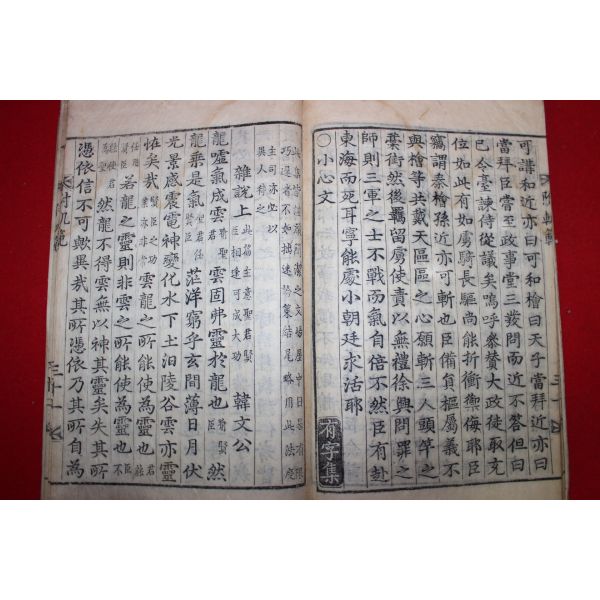 可講和近亦曰可和檜曰天子當拜近亦曰
當拜臣當至政事堂三發問而近不答但曰
已令臺諫侍從議矣嗚呼參贊大政徒取充
位如此有如虜騎長驅尚能折衝禦侮耶臣
竊謂秦檜孫近亦可斬也臣備員樞屬義不
與檜等共戴天區區之心願斬三人頭竿之
藁街然後羈留虜使責以無禮徐興問罪之
師則三軍之士不戰而氣自倍不然臣有赴
東海而死耳寧能處小朝廷求活耶
○小心文
有字集
巧遲者不如拙速
主司亦必以
異人待之
雜說上
韓文公
龍噓氣成雲雲固弗靈於龍也然
龍乘是氣茫洋窮乎玄間薄日月伏
光景感震電神變化水下土汩陵谷雲亦靈
怪矣哉雲龍之所能使爲靈也
若龍之靈則非雲之所能使爲靈也
然龍不得雲無以神其靈矣失其所
憑依信不可歟異哉其所憑依乃其所自爲